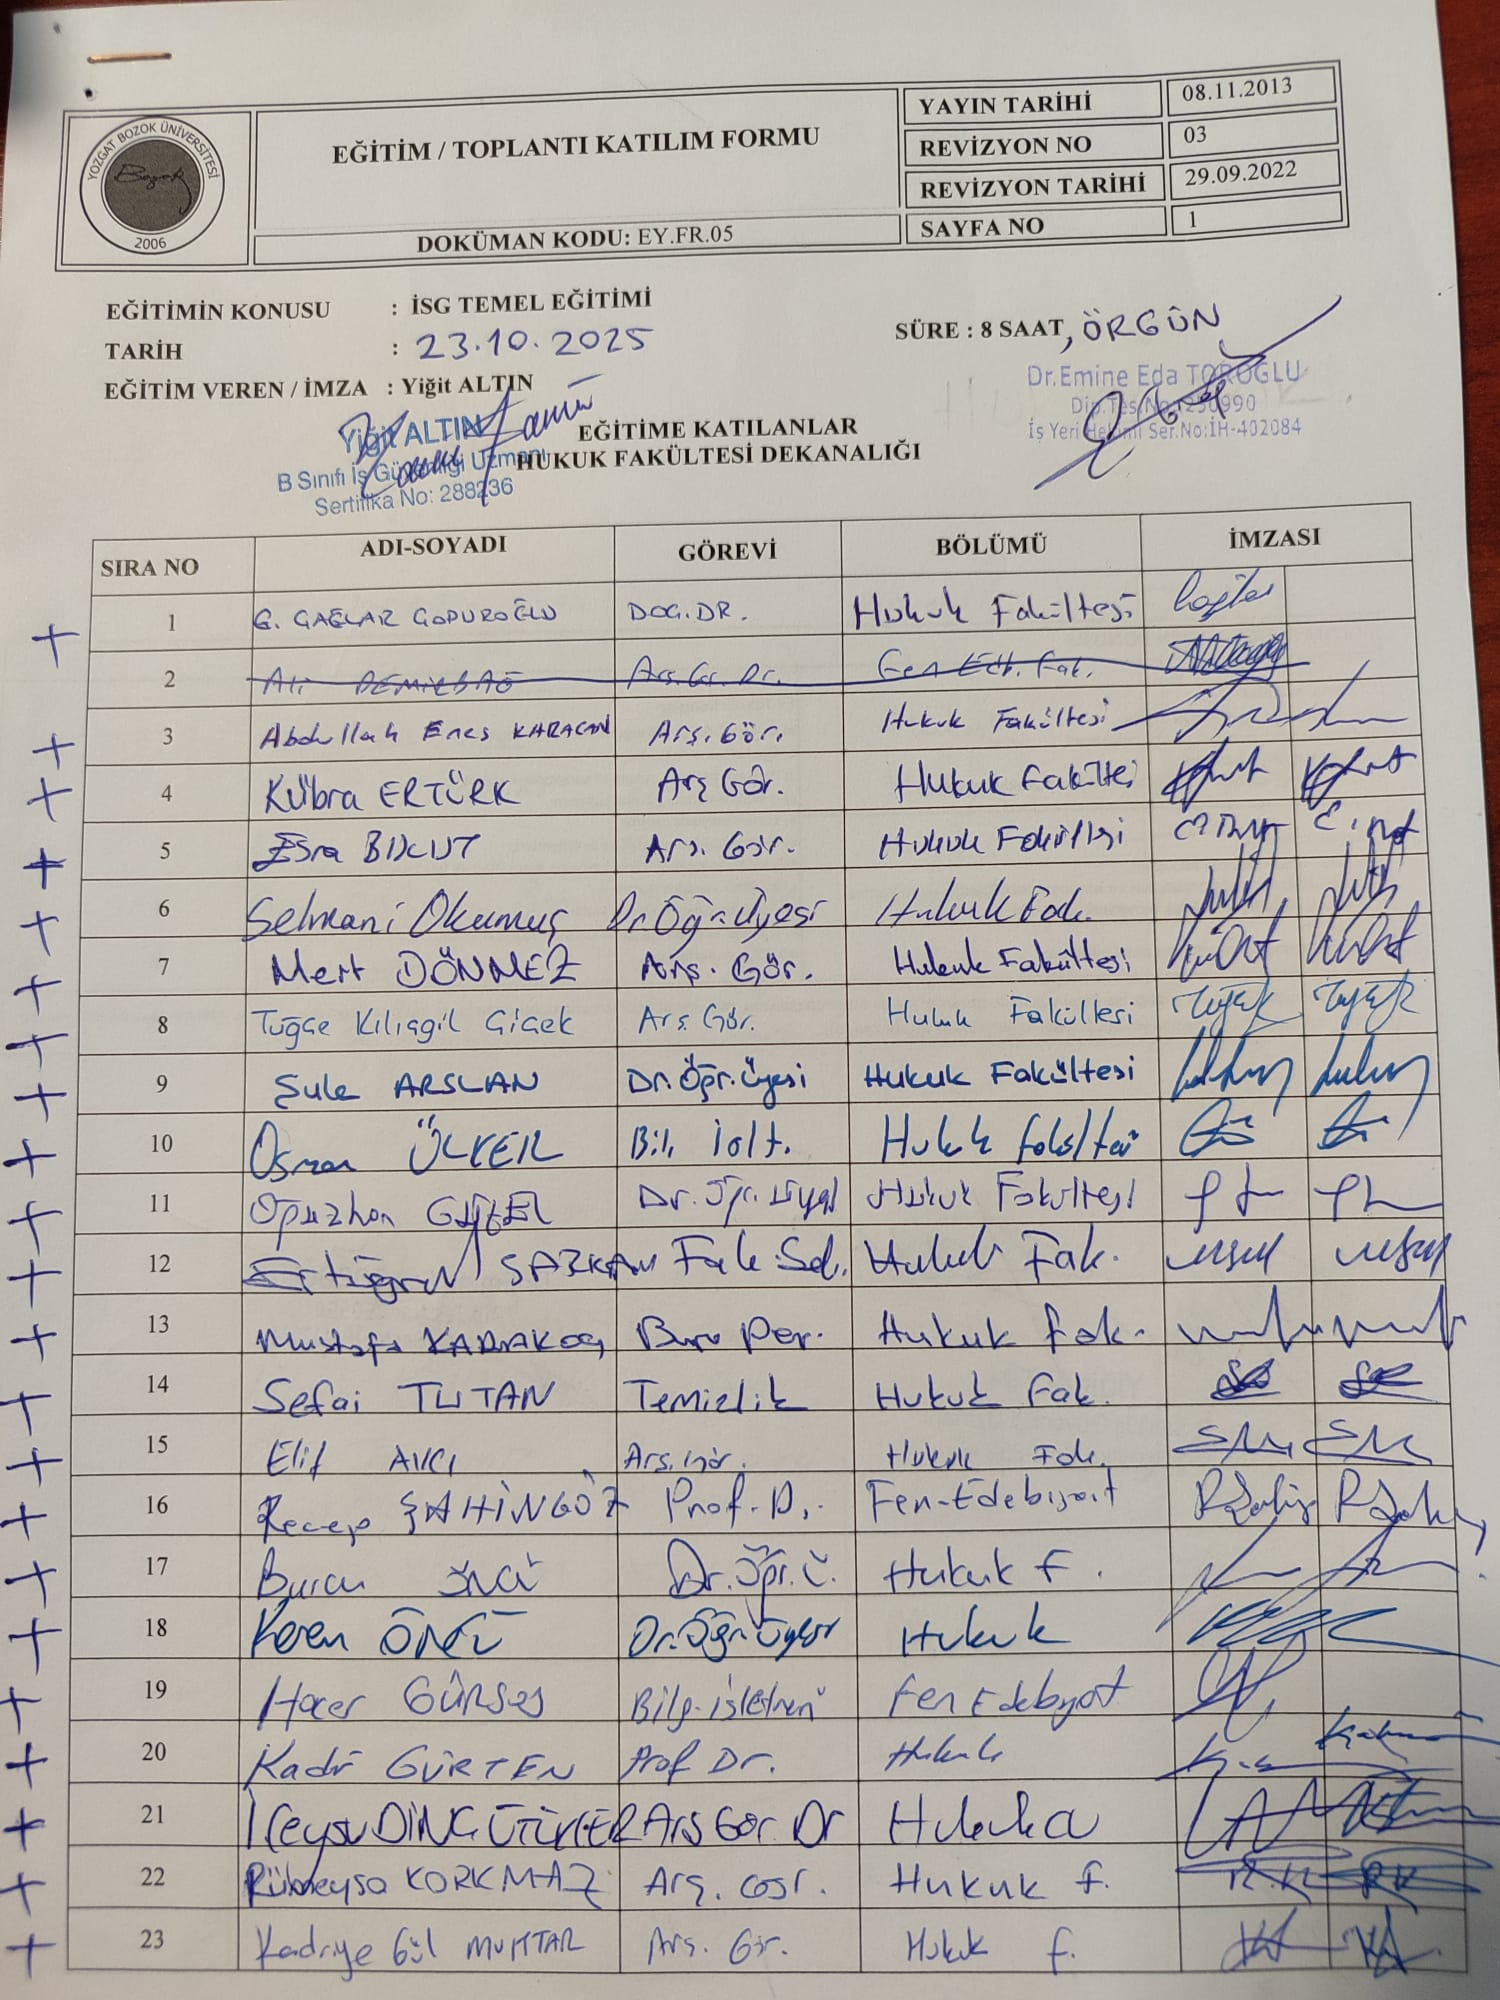 YOZGAT BOZOK ÜNİVERSİTESİ
2006
EĞİTİM / TOPLANTI KATILIM FORMU
DOKÜMAN KODU: EY.FR.05
YAYIN TARİHİ 08.11.2013
REVİZYON NO 03
REVİZYON TARİHİ 29.09.2022
SAYFA NO 1
EĞİTİMİN KONUSU : İSG TEMEL EĞİTİMİ
TARİH : 23.10.2025
SÜRE : 8 SAAT, ÖRGÜN
EĞİTİM VEREN / İMZA : Yiğit ALTIN
Dr.Emine Eda TOROĞLU
Dip.Tes.No:230990
İş Yeri Hekimi Ser.No:İH-402084
Yiğit ALTIN
B Sınıfı İş Güvenliği Uzmanı
Sertifika No: 288236
EĞİTİME KATILANLAR
HUKUK FAKÜLTESİ DEKANALIĞI
SIRA NO ADI-SOYADI GÖREVİ BÖLÜMÜ İMZASI
1 DOÇ.DR. Hukuk Fakültesi
2 Ali DEMİRBAĞ Arş.Gr.Dr. Fen Edb. Fak.
3 Abdullah Enes KARACAN Arş.Gör. Hukuk Fakültesi
4 Kübra ERTÜRK Arş Gör. Hukuk Fakültesi
5 Esra Arş. Gör. Hukuk Fakültesi
6 Selmani Okumuş Dr Öğr Üyesi Hukuk Fak.
7 Mert DÖNMEZ Arş. Gör. Hukuk Fakültesi
8 Tuğçe Kılıçgil Çiçek Arş. Gör. Hukuk Fakültesi
9 Şule ARSLAN Dr.Öğr.Üyesi Hukuk Fakültesi
10 Osman ÜLKER Bil. İşlt. Hukuk Fakültesi
11 Oğuzhan GÜZEL Dr. Öğr. Üyesi Hukuk Fakültesi
12 Ertuğrul Fak. Sek. Hukuk Fak.
13 Mustafa KARAKOÇ Büro Per. Hukuk Fak.
14 Sefai TUTAN Temizlik Hukuk Fak.
15 Elif AVCI Arş. Gör. Hukuk Fak.
16 Recep ŞAHİNGÖZ Prof. Dr. Fen-Edebiyat
17 Burcu ÖNCÜ Dr. Öğr. Ü. Hukuk F.
18 Keren ÖNCÜ Dr. Öğr. Üyesi Hukuk
19 Hacer GÜRSES Bilg. İşletmeni Fen Edebiyat
20 Kadir GÜRTEN Prof Dr. Hukuk
21 Arş Gör. Dr Hukuk
22 Rümeysa KORKMAZ Arş. Gör. Hukuk F.
23 Kadriye Gül MUHTAR Arş. Gör. Hukuk F.